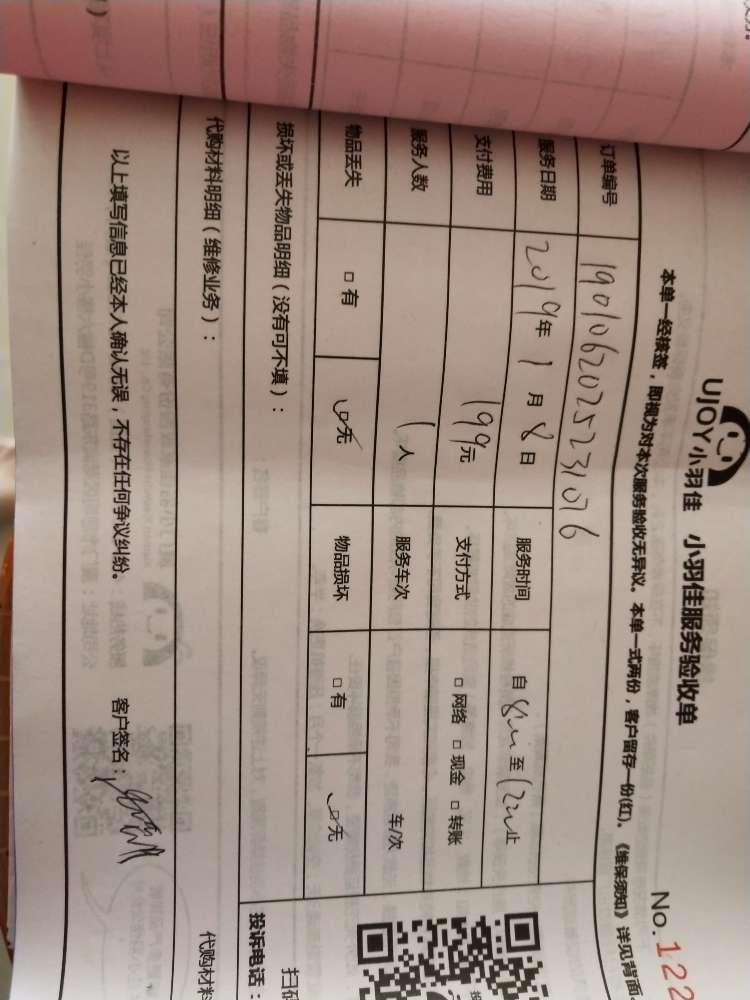 UJOY小羽佳 小羽佳服务验收单
No. 122
本单一经核签，即视为对本次服务验收无异议。本单一式两份，客户留存一份(红)。《维保须知》详见背面
订单编号 190106202523107 6
服务日期 2019年1月8日 服务时间 自 至 止
支付费用 199元 支付方式 □网络 □现金 □转账
服务人数 1人 服务车次 车/次
物品丢失 □有 □无 物品损坏 □有 □无
损坏或丢失物品明细（没有可不填）：
投诉电话：
代购材料明细（维修业务）：
代购材料
以上填写信息已经本人确认无误，不存在任何争议纠纷。 客户签名：